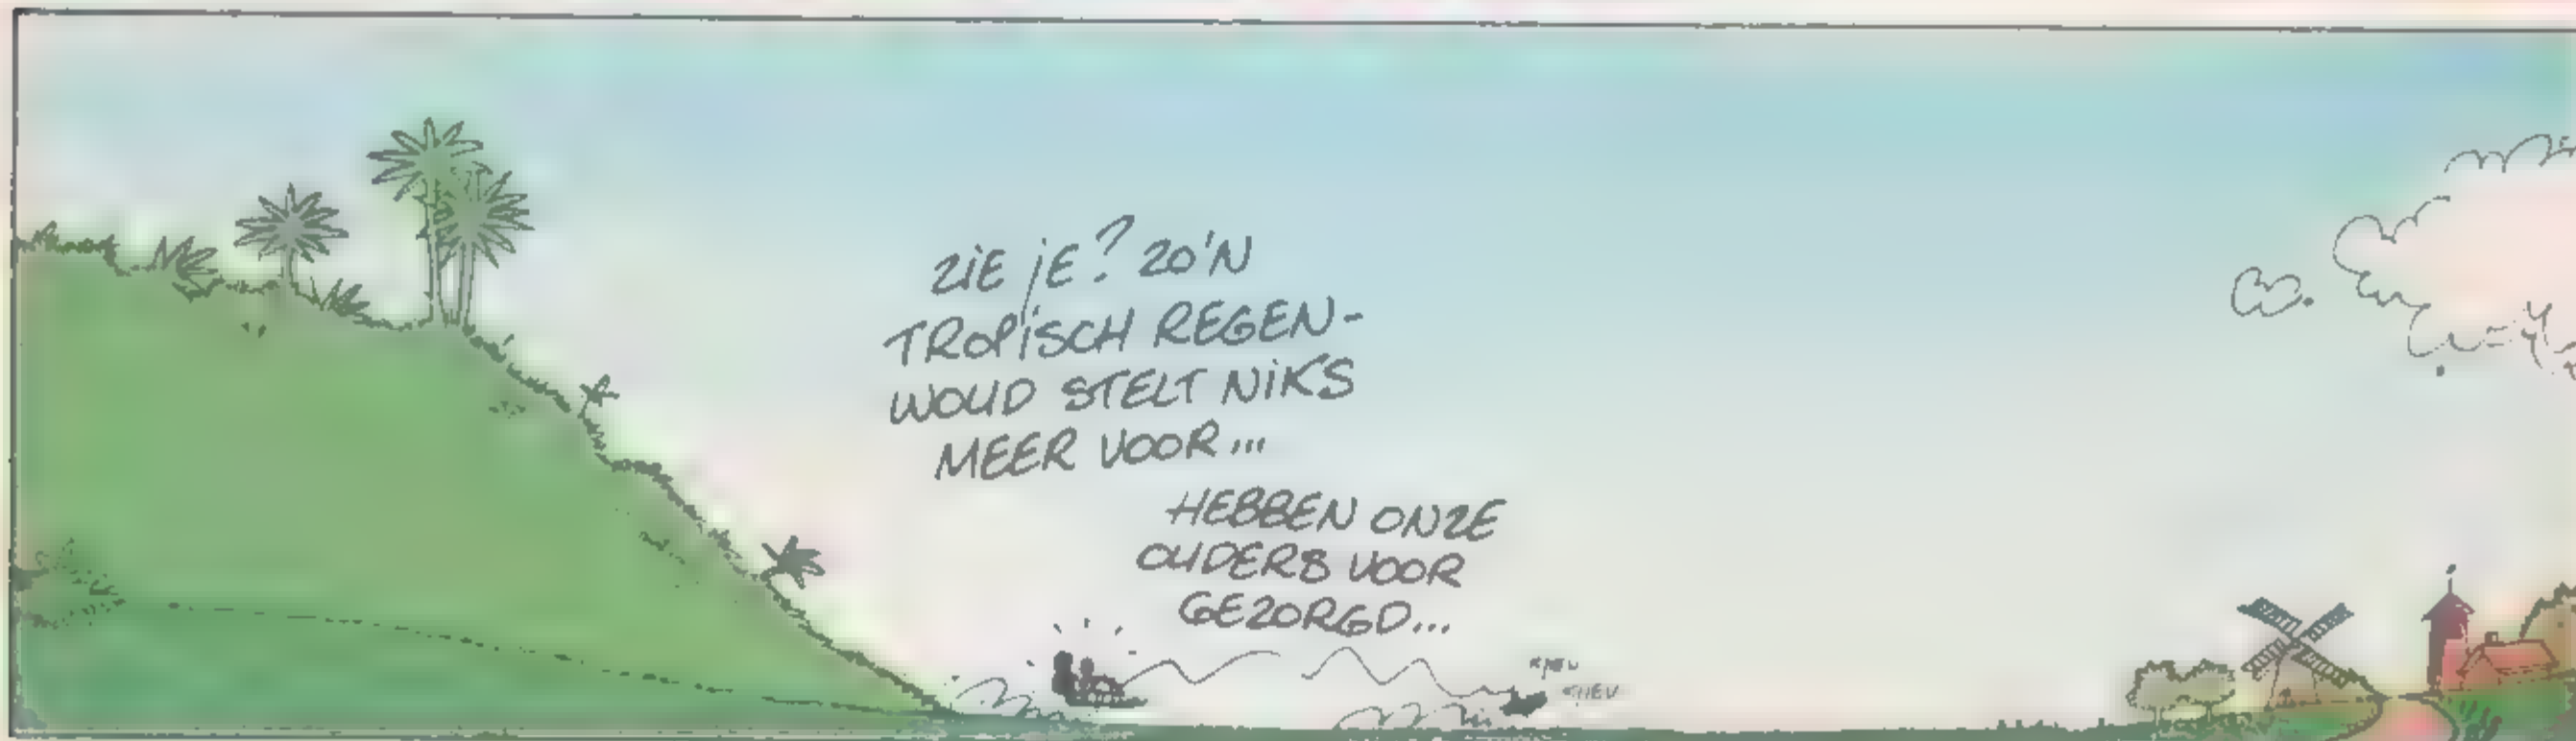 ZIE JE? ZO'N
TROPISCH REGEN-
WOUD STELT NIKS
MEER VOOR...
HEBBEN ONZE
OUDERS VOOR
GEZORGD...